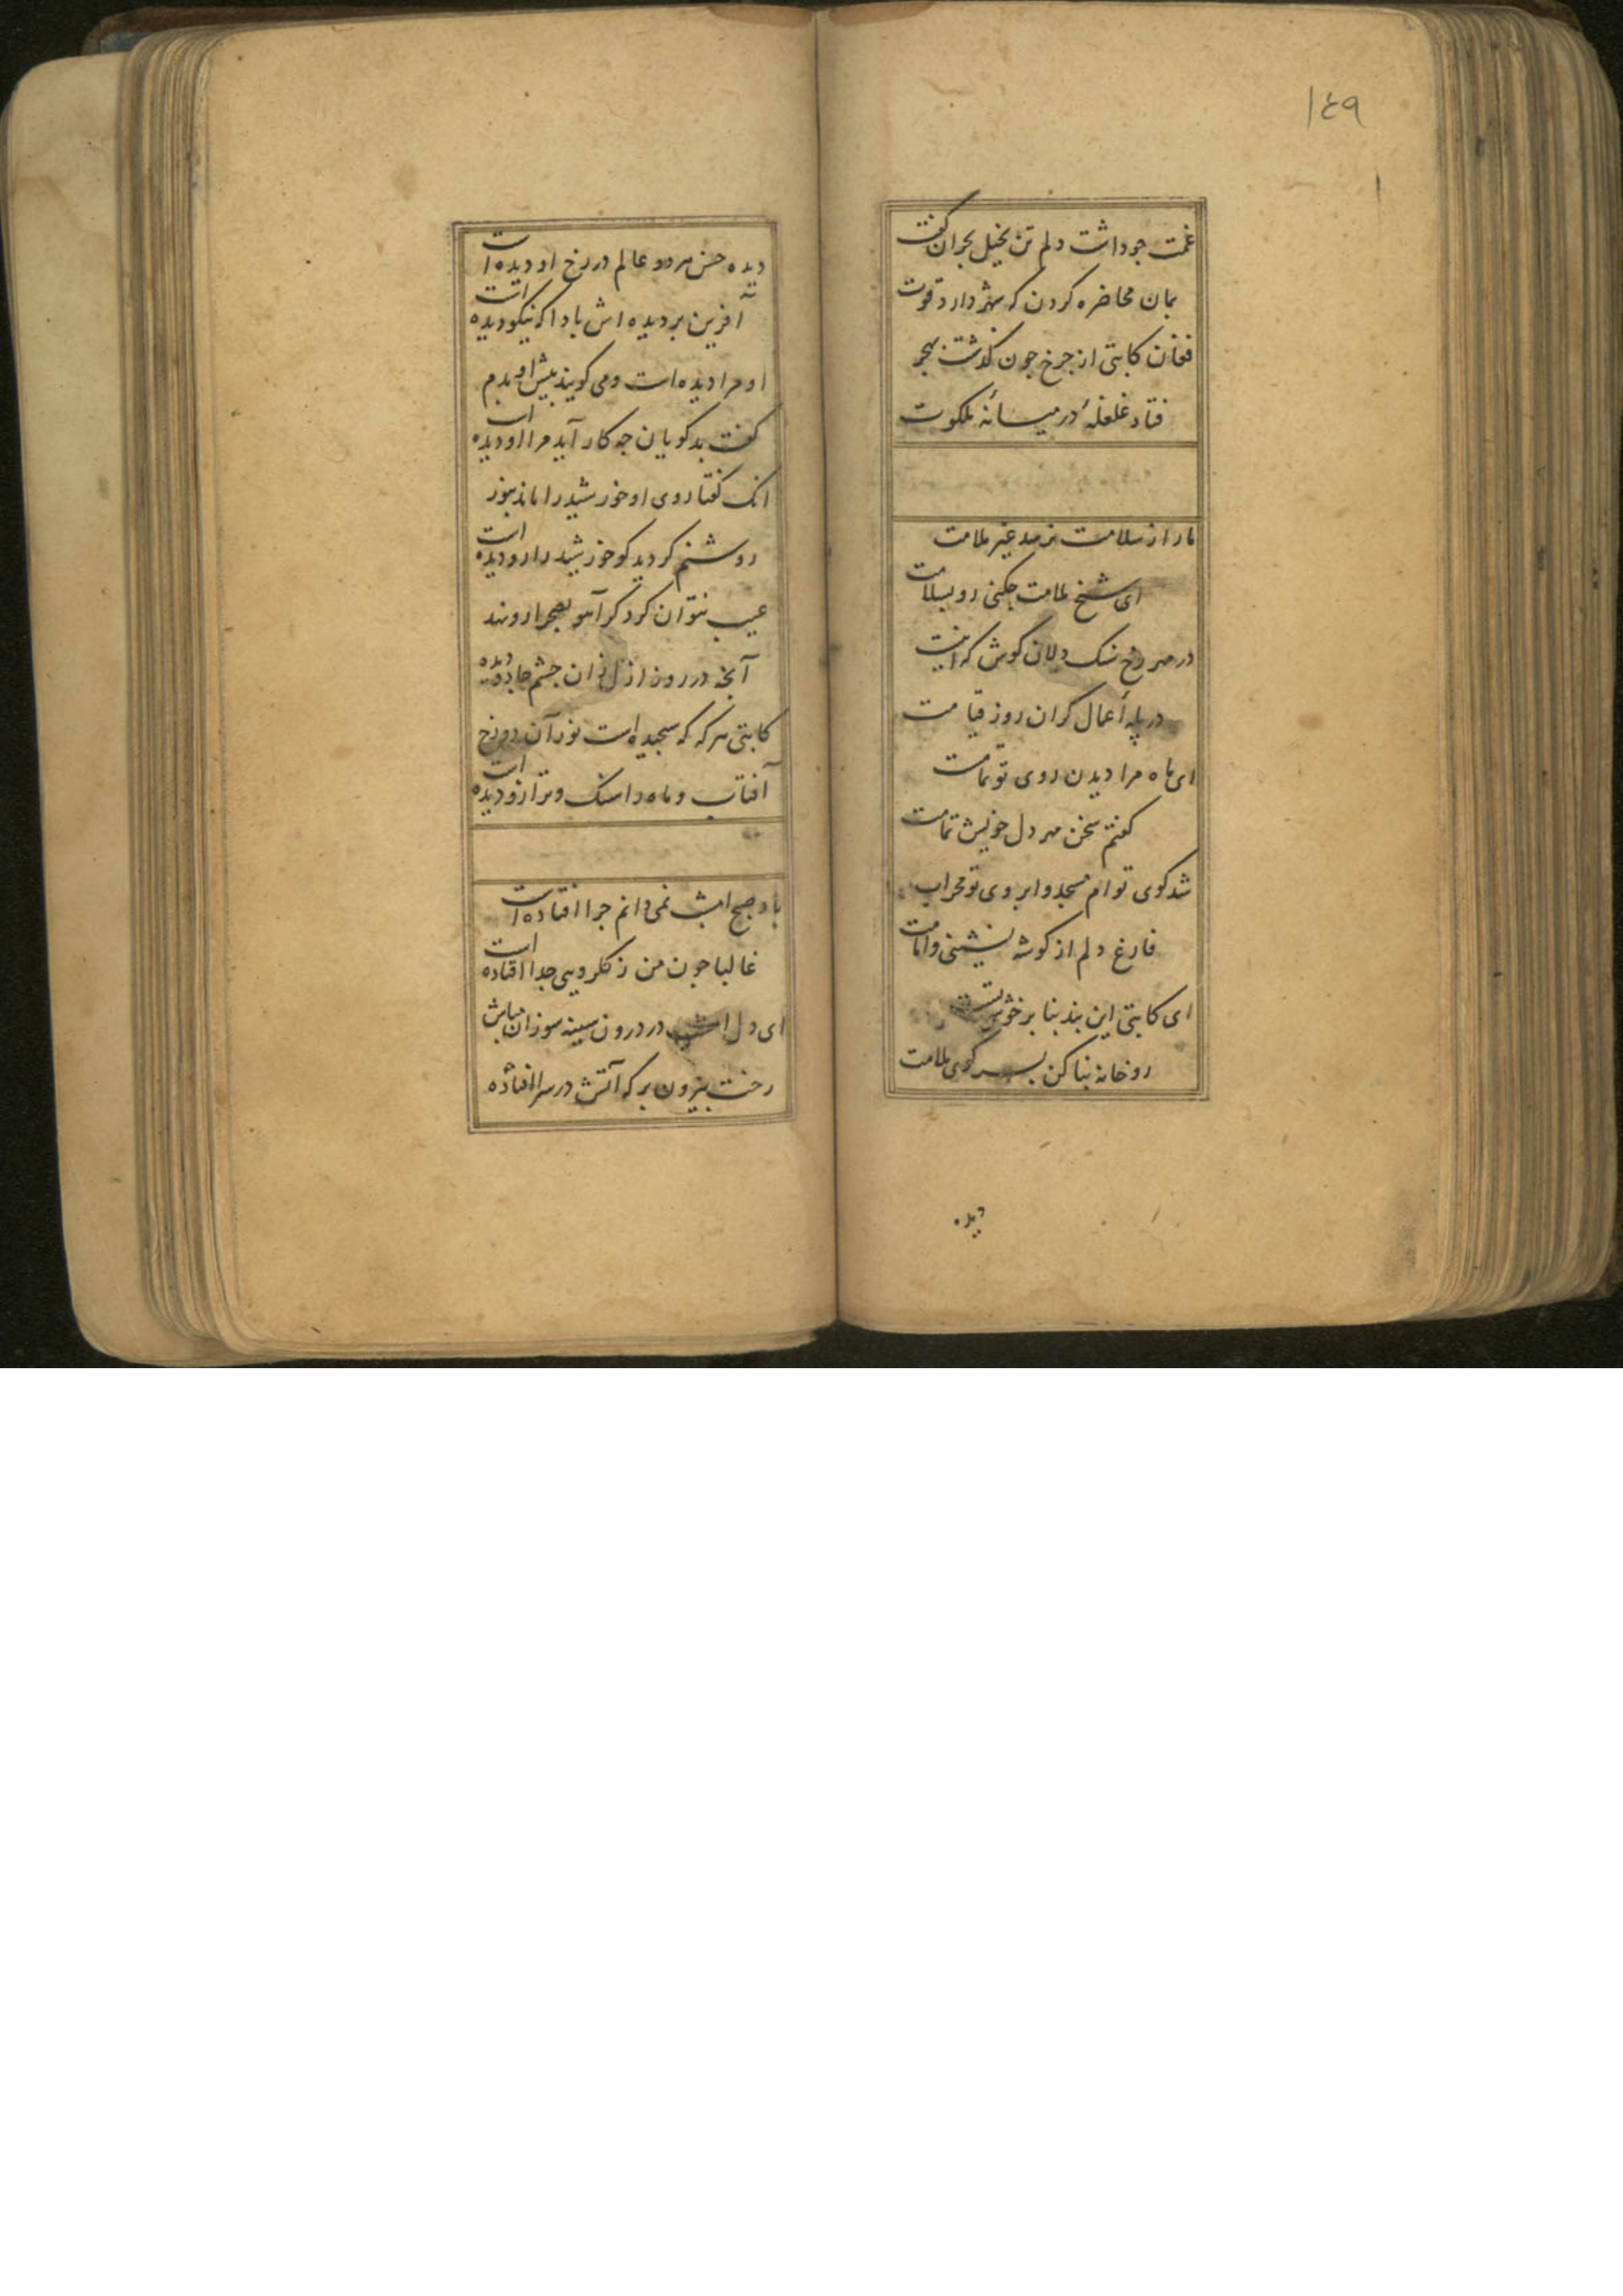 ۱٤۹
غمت جو داشت دلم تن بخیل بحران گفت
بمان محاضره کردن که شهر دارد قوت
فغان کاتبی از جرخ جون گذشت بهجر
فتاد غلغلهٔ در میانه ملکوت
ما را ز سلامت نرسد غیر ملامت
ای شیخ ملامت جکنی رو بسلامت
در مهر رخ سنک دلان کوش که اینست
در پله أعمال کران روز قیامت
ای ماه مرا دیدن روی تو تمامت
کفتم سخن مهر دل خویش تمامت
شد کوی توام مسجد و ابروی تو محراب
فارغ دلم از کوشه نشینی و امامت
ای کاتبی این بند بنا بر
رو خانه بنا کن بسر کوی ملامت
دیده
دیده حسن هر دو عالم در رخ او دیده است
آفرین بر دیده اش بادا که نیکو دیده است
او مرا دیده است و می کویند پیش او بدم
کفت بد کویان جه کار آید مرا او دیده است
انک کفتا روی او خورشید را ماند بنور
روشنم کردید کو خورشید را رو دیده است
عیب نتوان کرد کر آهو بصحرا رو نهد
آنجه در روز ازل زان جشم جادو دیده
کاتبی هر که که سنجیده است نور آن دو رخ
آفتاب و ماه را سنک و ترازو دیده است
باد صبح امشب نمی دانم جرا افتاده است
غالبا جون من ز کلرویی جدا افتاده است
ای دل امشب در درون سینه سوزان مباش
رخت بیرون بر که آتش در سرا افتاده